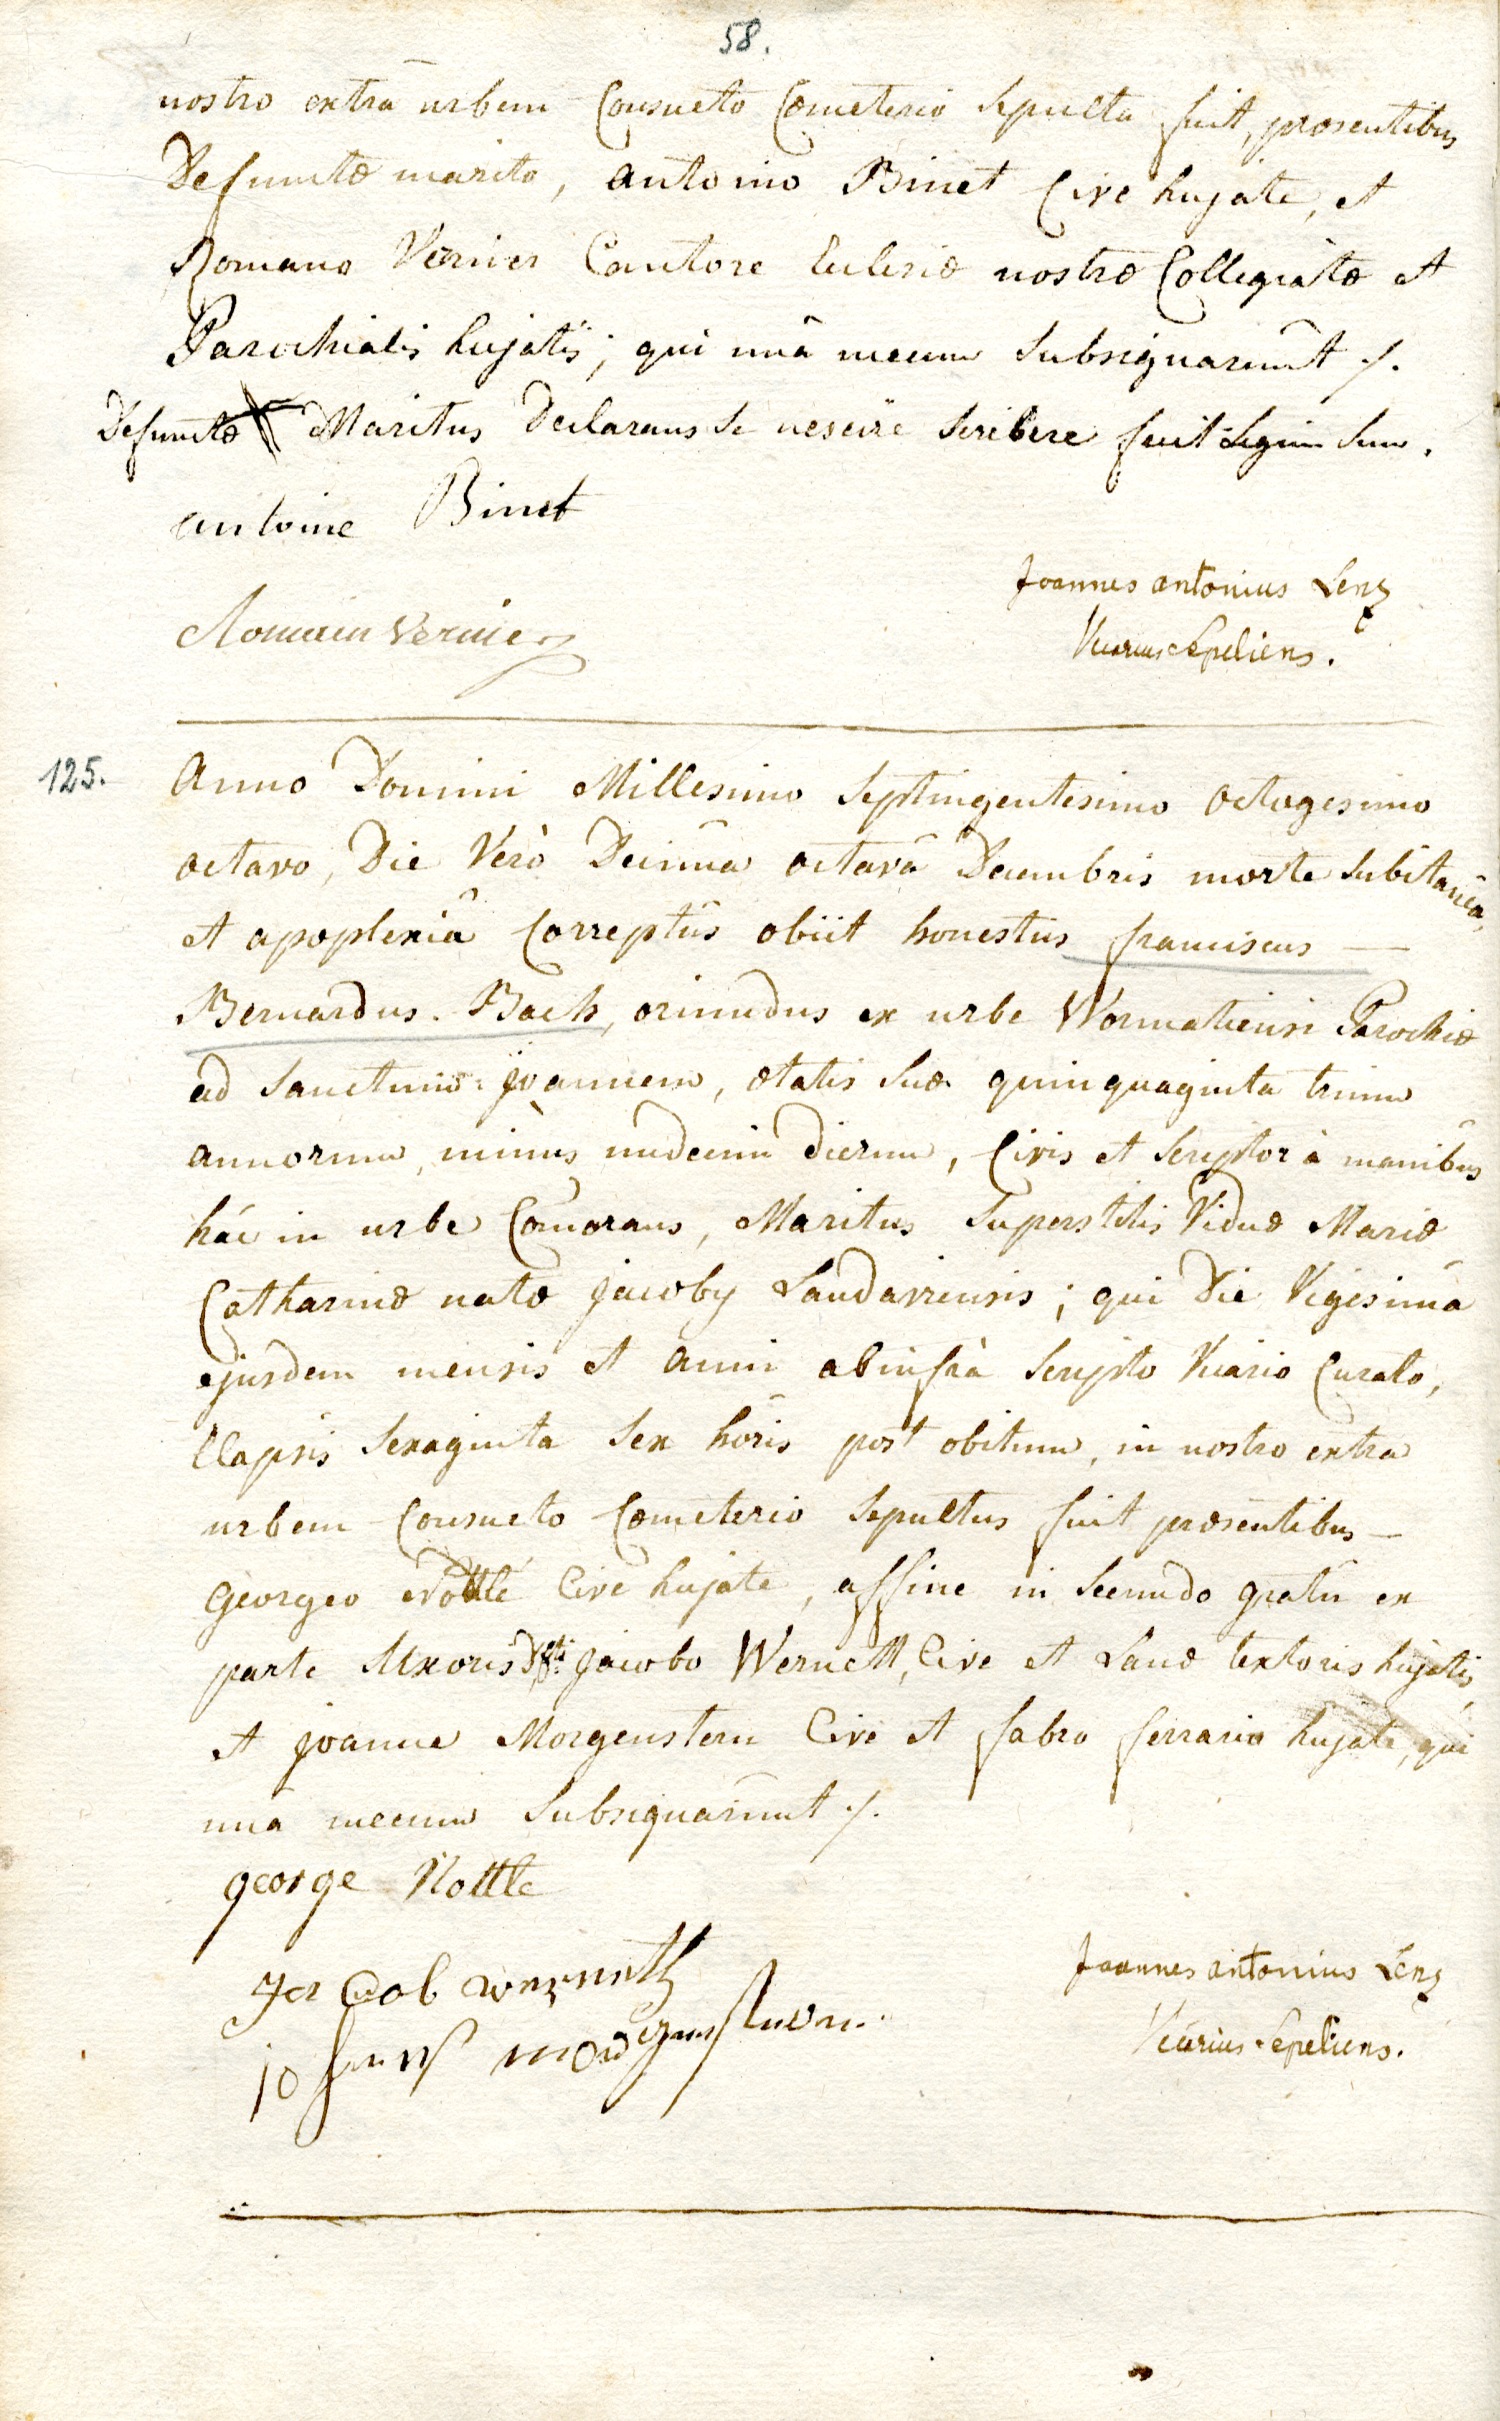 58.
nostro extrà urbem Consueto Cœmeterio Sepulta fuit, præsentibus
Defunctæ marito, antonio Binet Cive hujate, et
Romano Vernier Cantore Eclesiæ nostræ Collegiatæ et
Parochialis hujatis; qui unâ mecum Subsignarunt ./.
Defunctæ Maritus Declarans Se nescire Scribere fecit Signum Suum.
antoine Binet
Romain Vernier
Joannes antonius Lenz
Vicarius Sepeliens.
125. Anno Domini Millesimo Septingentesimo octogesimo
octavo, Die Verò Decima octavâ Decembris morte Subitaneâ,
et apoplexiâ Correptus obiit honestus franciscus —
Bernardus Bach, oriundus ex urbe Wormatiensi Parochiæ
ad Sanctum Joannem, ætatis Suæ quinquaginta trium
annorum, minùs undecim dierum, Civis et Scriptor à manibus
hâc in urbe Comorans, Maritus Superstitis Viduæ Mariæ
Catharinæ natæ Jacoby Landaviensis; qui Die Vigesimâ
ejusdem mensis et anni ab infrà Scripto Vicario Curato,
Elapsis Sexaginta Sex horis post obitum, in nostro extra
urbem Consueto Cœmeterio Sepultus fuit præsentibus —
Georgeo Nottlé Cive hujate, affine in Secundo gradu ex
parte Uxoris Dfti Jacobo Wernett, Cive et Lanæ textoris hujatis,
et Joanne Morgenstern Cive et fabro ferrario hujate, qui
unà mecum Subsignarunt ./.
george Nottle
Jacob Werneth
Johannes Morgenstern
Joannes antonius Lenz
Vicarius Sepeliens.